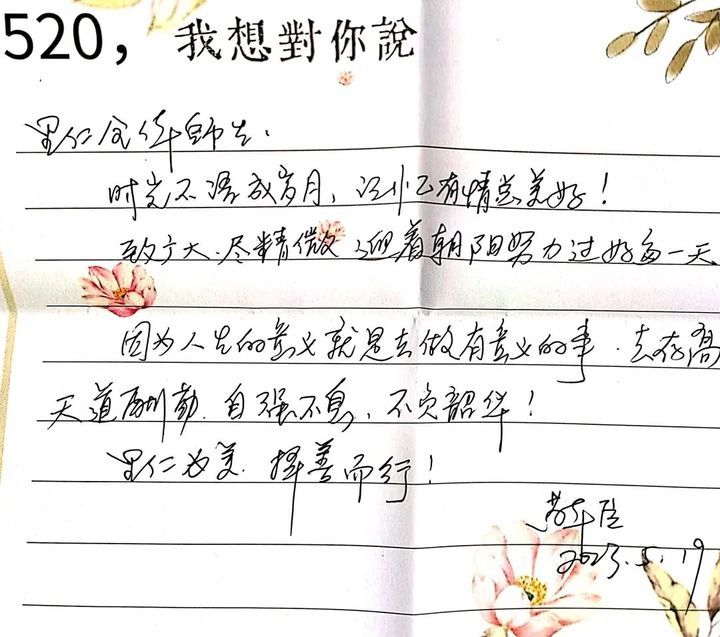 520，我想對你說
里仁全体师生：
时光不语成岁月，记忆有情总美好！
致广大、尽精微，迎着朝阳努力过好每一天
因为人生的意义就是去做有意义的事，志存高
天道酬勤、自强不息，不负韶华！
里仁为美，择善而行！
2023.5.19